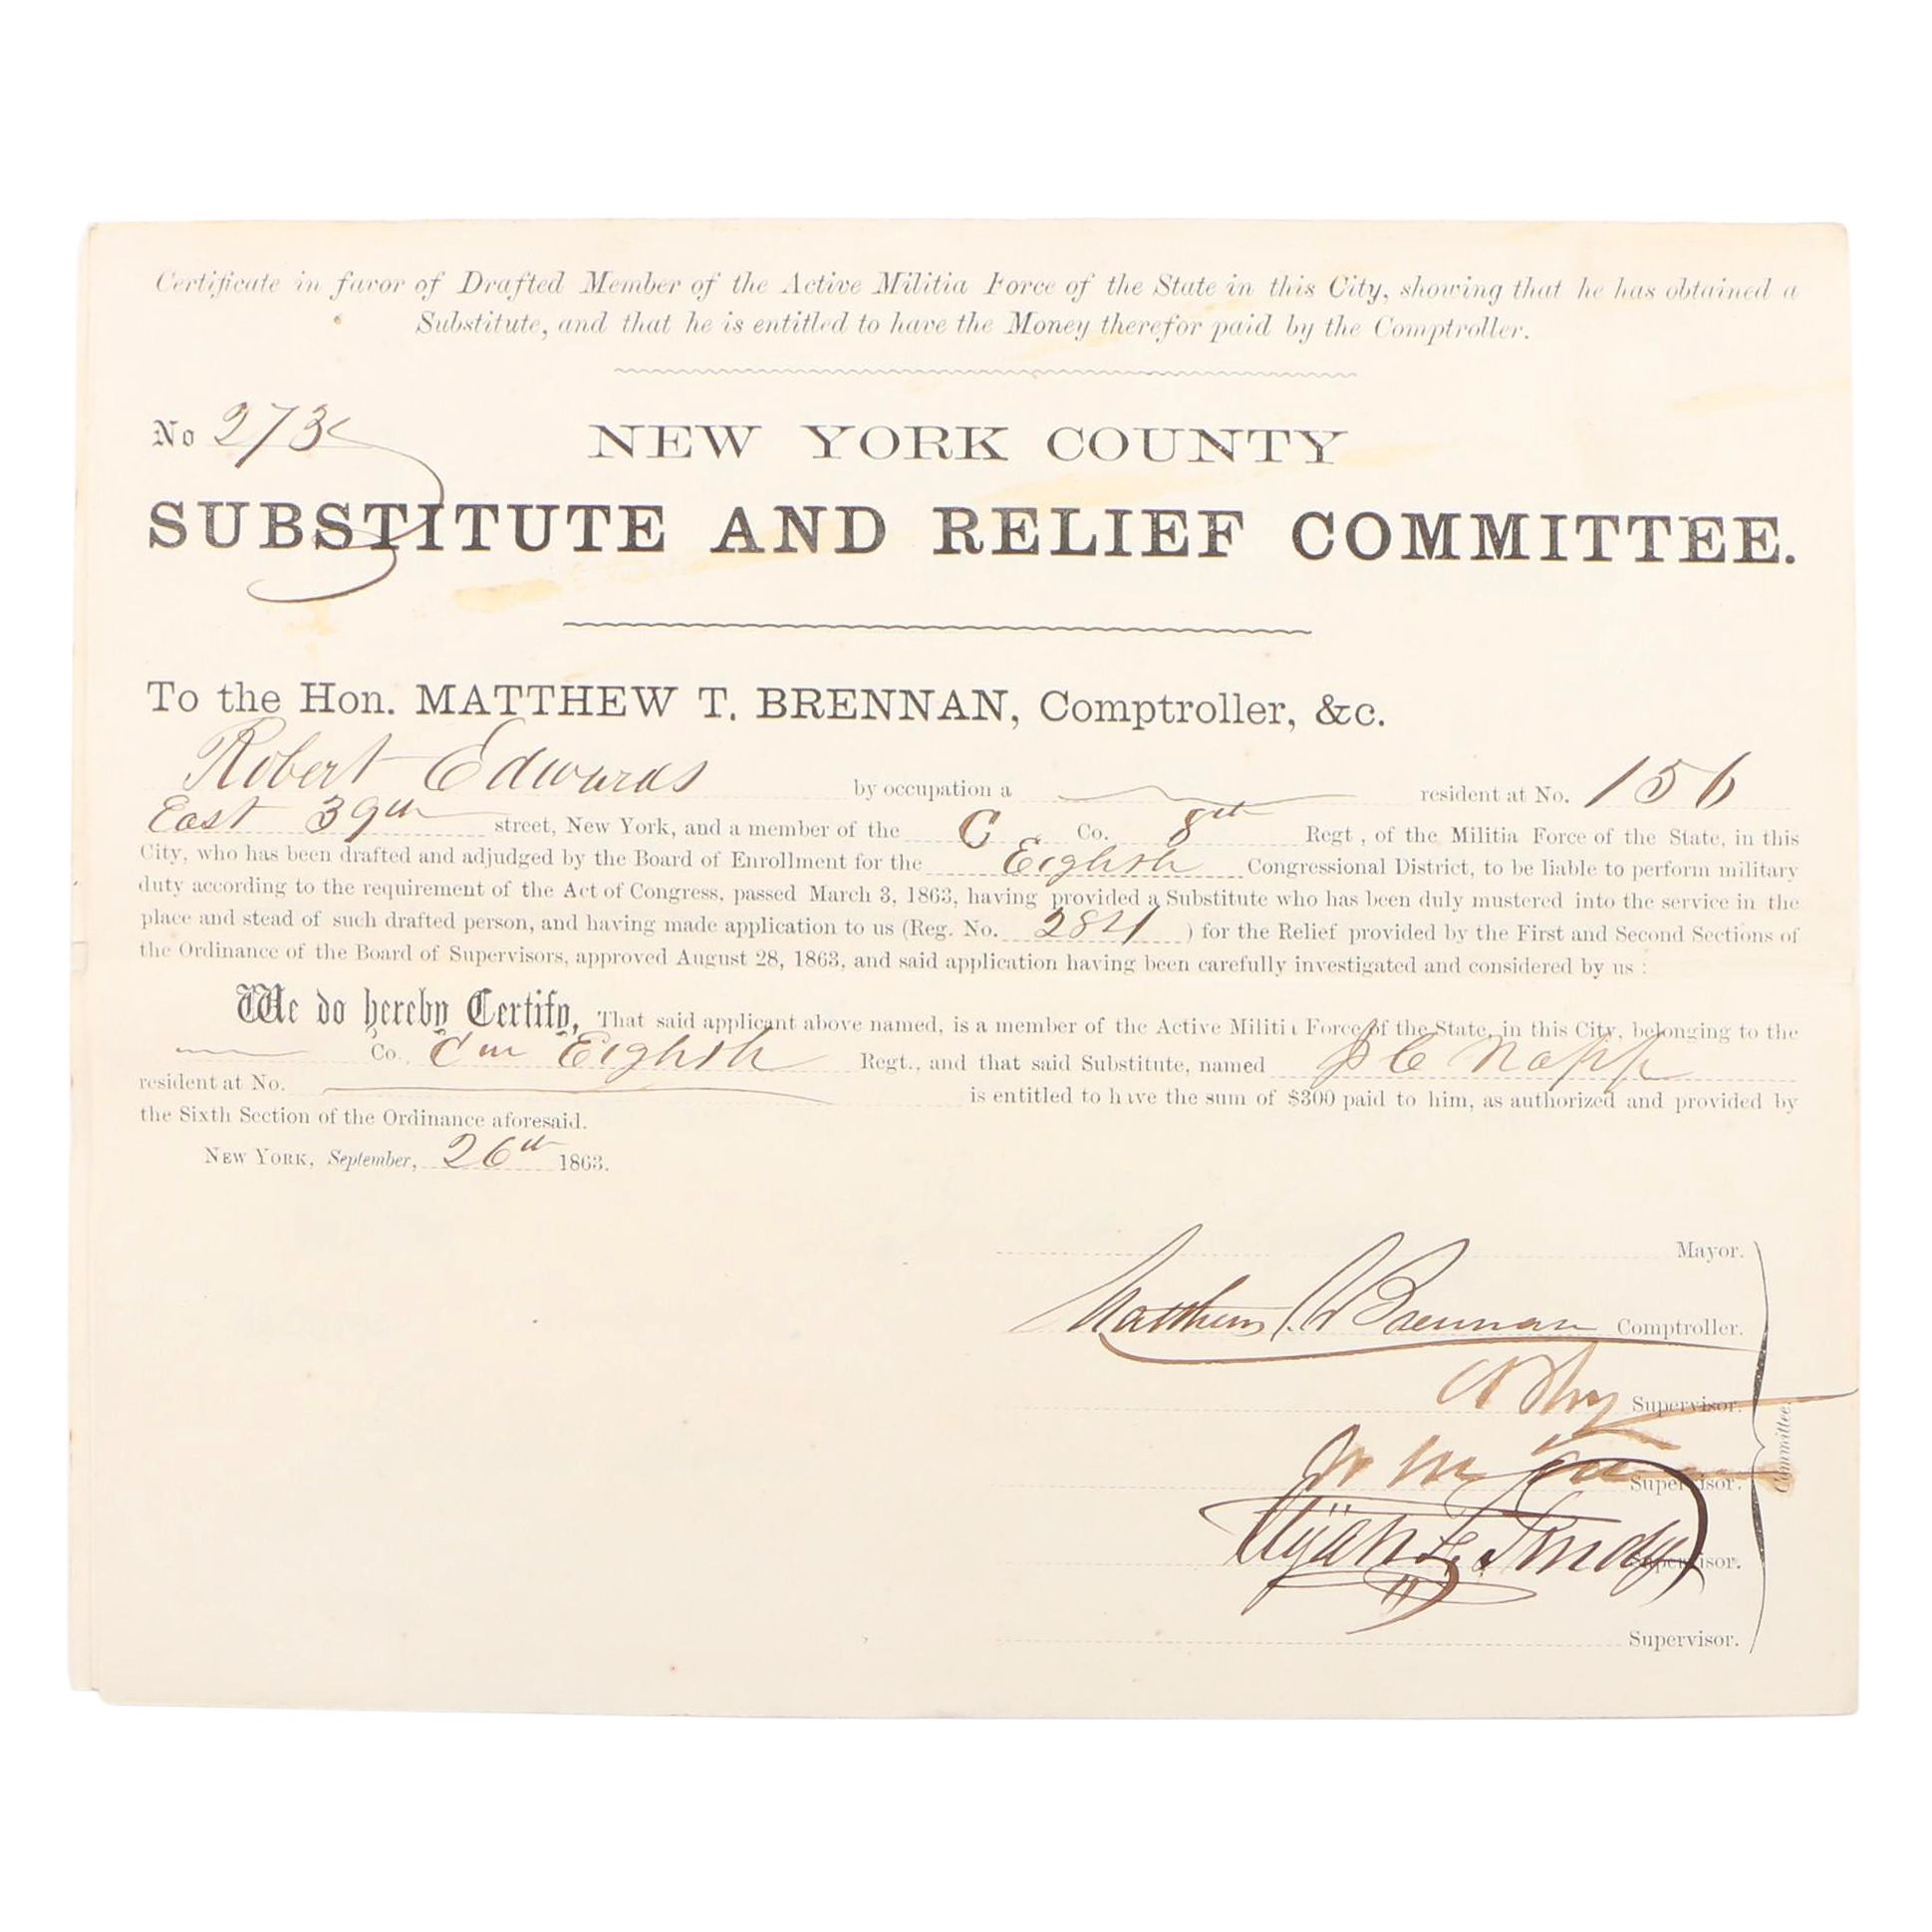 Certificate in favor of Drafted Member of the Active Militia Force of the State in this City, showing that he has obtained a
Substitute, and that he is entitled to have the Money therefor paid by the Comptroller.
No 273
NEW YORK COUNTY
SUBSTITUTE AND RELIEF COMMITTEE.
To the Hon. MATTHEW T. BRENNAN, Comptroller, &c.
Robert Edwards by occupation a resident at No. 156
East 39th street, New York, and a member of the C Co. 8th Regt, of the Militia Force of the State, in this
City, who has been drafted and adjudged by the Board of Enrollment for the Eighth Congressional District, to be liable to perform military
duty according to the requirement of the Act of Congress, passed March 3, 1863, having provided a Substitute who has been duly mustered into the service in the
place and stead of such drafted person, and having made application to us (Reg. No. ) for the Relief provided by the First and Second Sections of
the Ordinance of the Board of Supervisors, approved August 28, 1863, and said application having been carefully investigated and considered by us :
We do hereby Certify, That said applicant above named, is a member of the Active Militia Force of the State, in this City, belonging to the
Co. Eighth Regt., and that said Substitute, named Napp
resident at No. is entitled to have the sum of $300 paid to him, as authorized and provided by
the Sixth Section of the Ordinance aforesaid.
NEW YORK, September, 26th 1863.
Mayor.
Matthew T. Brennan Comptroller.
Supervisor.
Supervisor.
Supervisor.
Supervisor.
Committee.